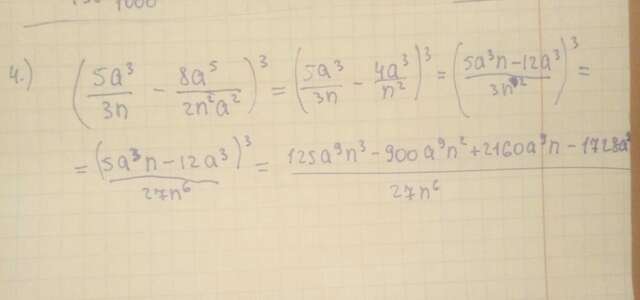 1000
4.) (5a³/3n − 8a⁵/2n²a²)³ = (5a³/3n − 4a³/n²)³ = (5a³n−12a³/3n²)³ =
= (5a³n−12a³)³/27n⁶ = 125a⁹n³−900a⁹n²+2160a⁹n−1728a⁹/27n⁶